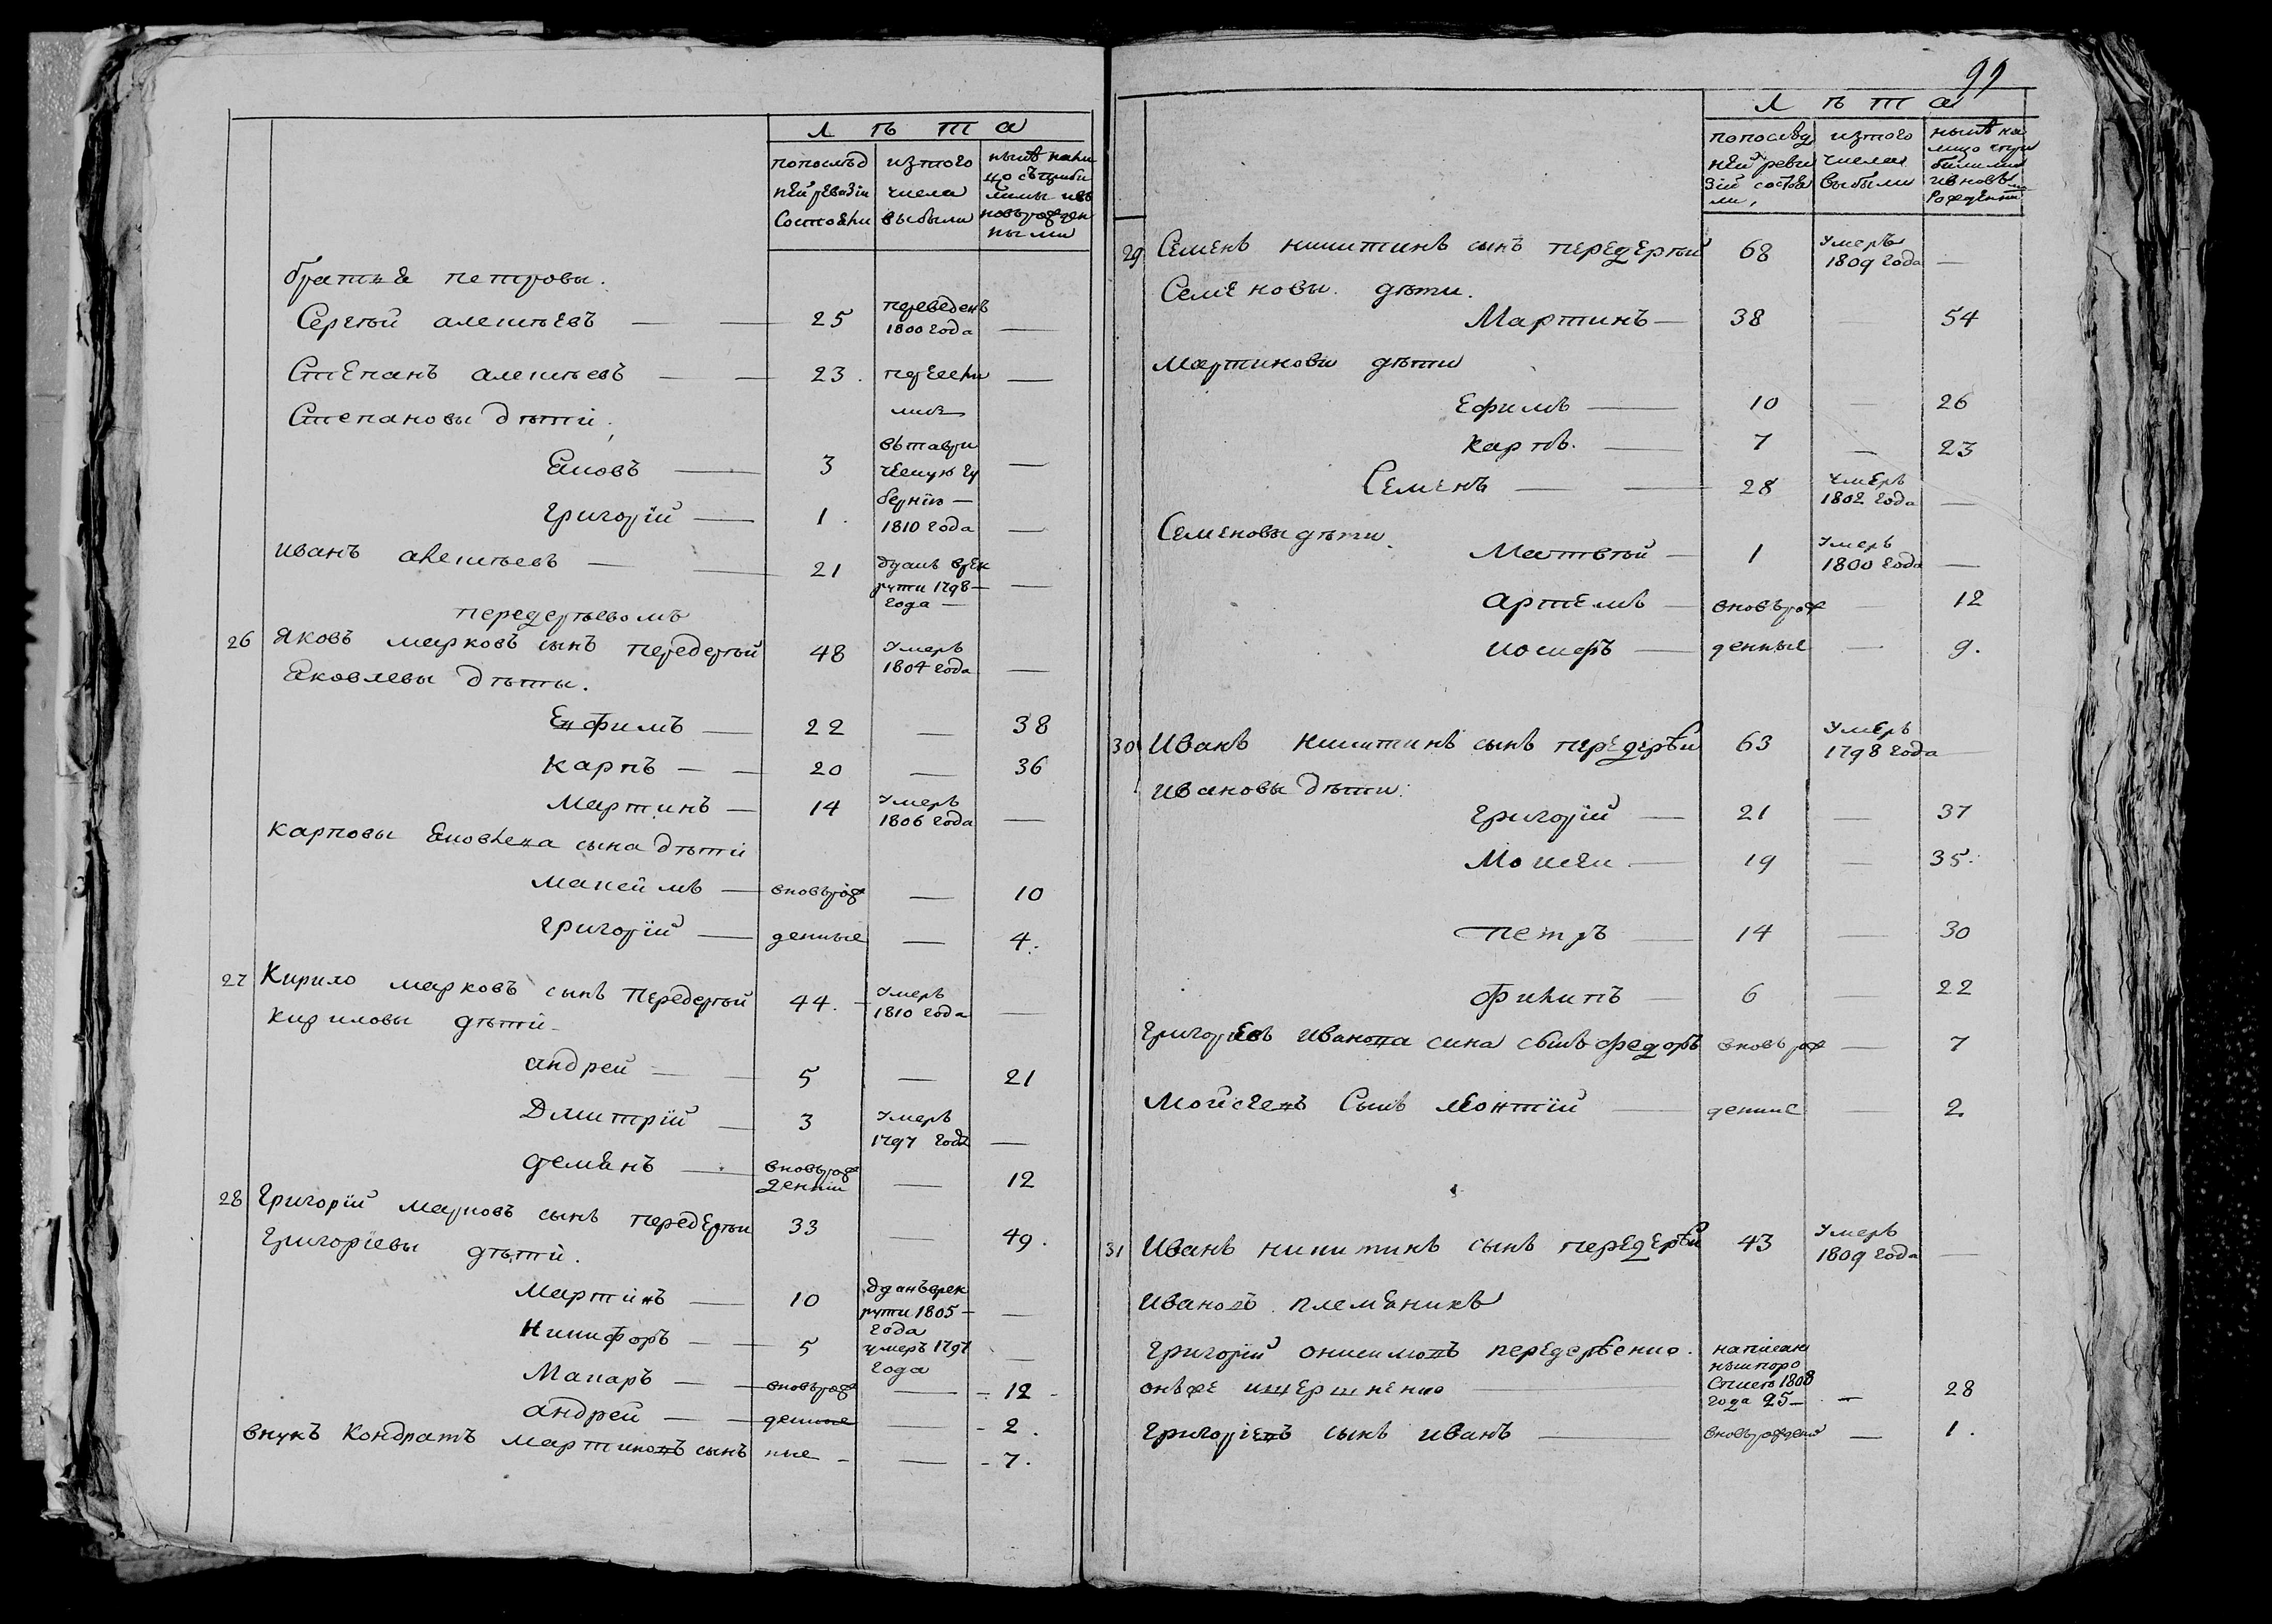 Л ѣ т а
попослѣд ней ревизіи состояли
изтого числа выбыли
нынѣ нали цо съ приби лими ивъ новь рожден ными
братья петровы.
Сергѣй алексѣевъ — 25 переведенъ 1800 года —
Степанъ алексѣевъ — 23. пересели —
Степановы дѣти. лись
Яковъ — 3 въ таври ческую гу —
Григорій — 1. бернію — 1810 года —
иванъ алексѣевъ — 21 отданъ врек рути 1798 — года — —
передерѣевомъ
26 яковъ марковъ сынъ передерѣй 48 умеръ 1804 года —
Яковлевы дѣты.
Ефимъ — 22 — 38
карпъ — 20 — 36
мартинъ — 14 умеръ 1806 года —
карповы Яковлева сына дѣти
максимъ — вновь рож — 10
григорій — денные — 4.
27 Кирило марковъ сынъ передерѣй 44. умеръ 1810 года —
кириловы дѣти
андрей — 5 — 21
Дмитрій — 3 умеръ 1797 года —
демянъ — вновь рож денній — 12
28 Григорій марковъ сынъ передерѣи 33 — 49.
Григоріевы дѣти.
мартинъ — 10 отданъ врек рути 1805 — года —
никифоръ — 5 умеръ 1797 года —
Макаръ — вновь рож — 12
андрей — денные — 2.
внукъ Кондратъ мартиновъ сынъ ные — 7.
99
Л ѣ т а
попослѣд ней реви зіи состоя ли,
изтого числа выбыли
нынѣ на лицо
29 Семенъ никитинъ сынъ передерѣй 68 умеръ 1809 года —
Семеновы дѣти.
Мартинъ — 38 — 54
мартиновы дѣти
Ефимъ — 10 — 26
карпъ. — 7 — 23
Семенъ — 28 умеръ 1802 года —
Семеновы дѣти.
Матвѣй — 1 умеръ 1800 года —
артемъ — вновь рож — 12
иосифъ — денные — 9.
30 Иванъ никитинъ сынъ передерѣй 63 умеръ 1798 года —
ивановы дѣти.
григорій — 21 — 37
Моисеи — 19 — 35.
петръ — 14 — 30
филипъ — 6 — 22
григоріевъ иванова сина синъ федоръ вновь рож — 7
мойсеевъ синъ леонтій — денние — 2
31 Иванъ никитинъ сынъ передерѣй 43 умеръ 1809 года —
ивановъ племяникъ
григорій онисимовъ передерѣенко. написан
года 25 — 28
григоріевъ сынъ иванъ — вновь рожден — 1.